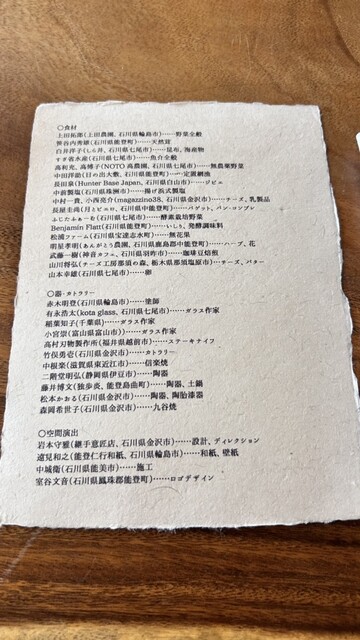 ○食材
上田拓郎(上田農園、石川県輪島市)……野菜全般
笹谷内秀雄(石川県能登町)……天然茸
白井洋子(しら井、石川県七尾市)……昆布、海産物
すず省水産(石川県七尾市)……魚介全般
高利充、高博子(NOTO 高農園、石川県七尾市)……無農薬野菜
中田洋助(日の出大敷、石川県能登町)……定置網漁
長田泉(Hunter Base Japan、石川県白山市)……ジビエ
中前製塩(石川県珠洲市)……揚げ浜式製塩
中村一貴、小西亮介(magazzino38、石川県金沢市)……チーズ、乳製品
長屋圭尚(月とピエロ、石川県中能登町)……バゲット、パン・コンプレ
ふじたふぁーむ(石川県七尾市)……酵素栽培野菜
Benjamin Flatt(石川県能登町)……いしり、発酵調味料
松浦ファーム(石川県宝達志水町)……無花果
明星孝昭(あんがとう農園、石川県鹿島郡中能登町)……ハーブ、花
武藤一樹(神音カフェ、石川県羽咋市)……珈琲豆焙煎
山川将弘(チーズ工房那須の森、栃木県那須塩原市)……チーズ、バター
山本幸雄(石川県七尾市)……卵
○器・カトラリー
赤木明登(石川県輪島市)……塗師
有永浩太(kota glass、石川県七尾市)……ガラス作家
稲葉知子(千葉県)……ガラス作家
小宮崇(富山県富山市))……ガラス作家
高村刃物製作所(福井県越前市)……ステーキナイフ
竹俣勇壱(石川県金沢市)……カトラリー
中根楽(滋賀県東近江市)……信楽焼
二階堂明弘(静岡県伊豆市)……陶器
藤井博文(独歩炎、能登島曲町)……陶器、土鍋
松本かおる(石川県金沢市)……陶器、陶胎漆器
森岡希世子(石川県金沢市)……九谷焼
○空間演出
岩本守雅(継手意匠店、石川県金沢市)……設計、ディレクション
遠見和之(能登仁行和紙、石川県輪島市)……和紙、壁紙
中城衛(石川県能美市)……施工
室谷文音(石川県鳳珠郡能登町)……ロゴデザイン